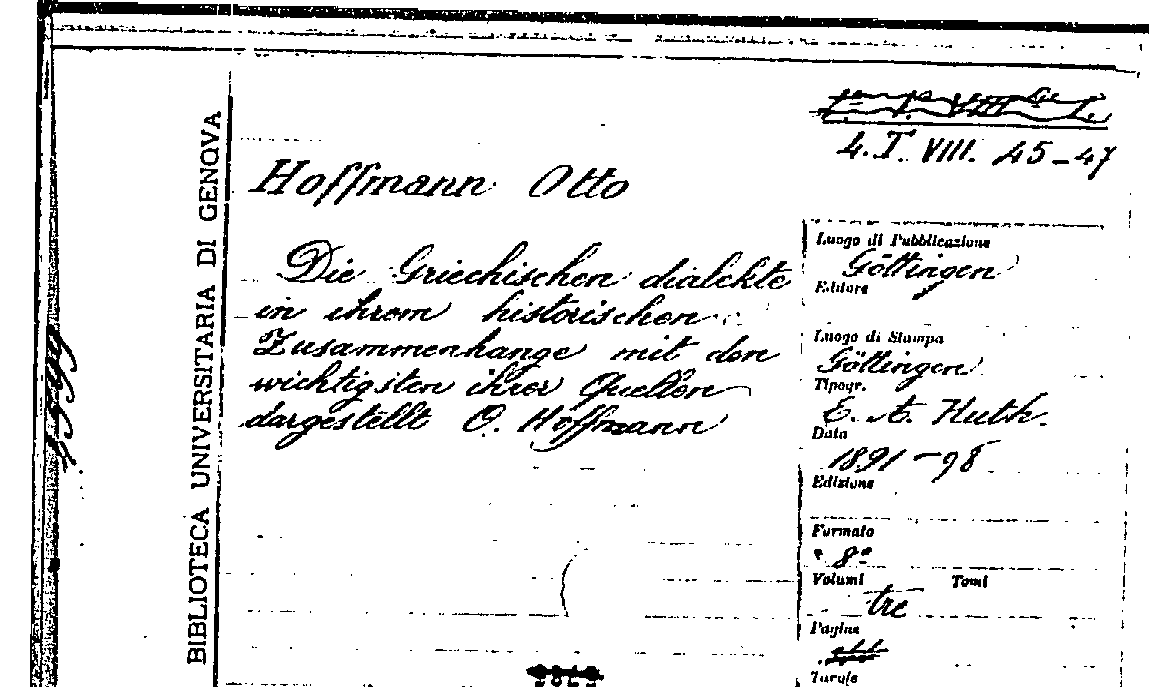 BIBLIOTECA UNIVERSITARIA DI GENOVA
4. T. VIII. 45-47
Hoffmann Otto
Die Griechischen dialekte
in ihrem historischen
Zusammenhange mit den
wichtigsten ihrer Quellen
dargestellt O. Hoffmann
Luogo di Pubblicazione
Göttingen
Editore
Luogo di Stampa
Göttingen
Tipogr.
E. A. Huth.
Data
1891-98
Edizione
Formato
8°
Volumi Tomi
tre
Pagine
Tavole